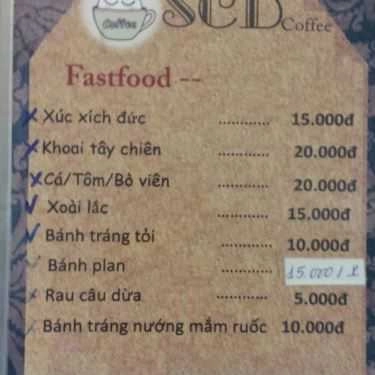 Coffee
SCD Coffee
Fastfood --
Xúc xích đức ............ 15.000đ
Khoai tây chiên ............ 20.000đ
Cá/Tôm/Bò viên ............ 20.000đ
Xoài lắc ............ 15.000đ
Bánh tráng tỏi ............ 10.000đ
Bánh plan ............ 15.000/1
Rau câu dừa ............ 5.000đ
Bánh tráng nướng mắm ruốc 10.000đ